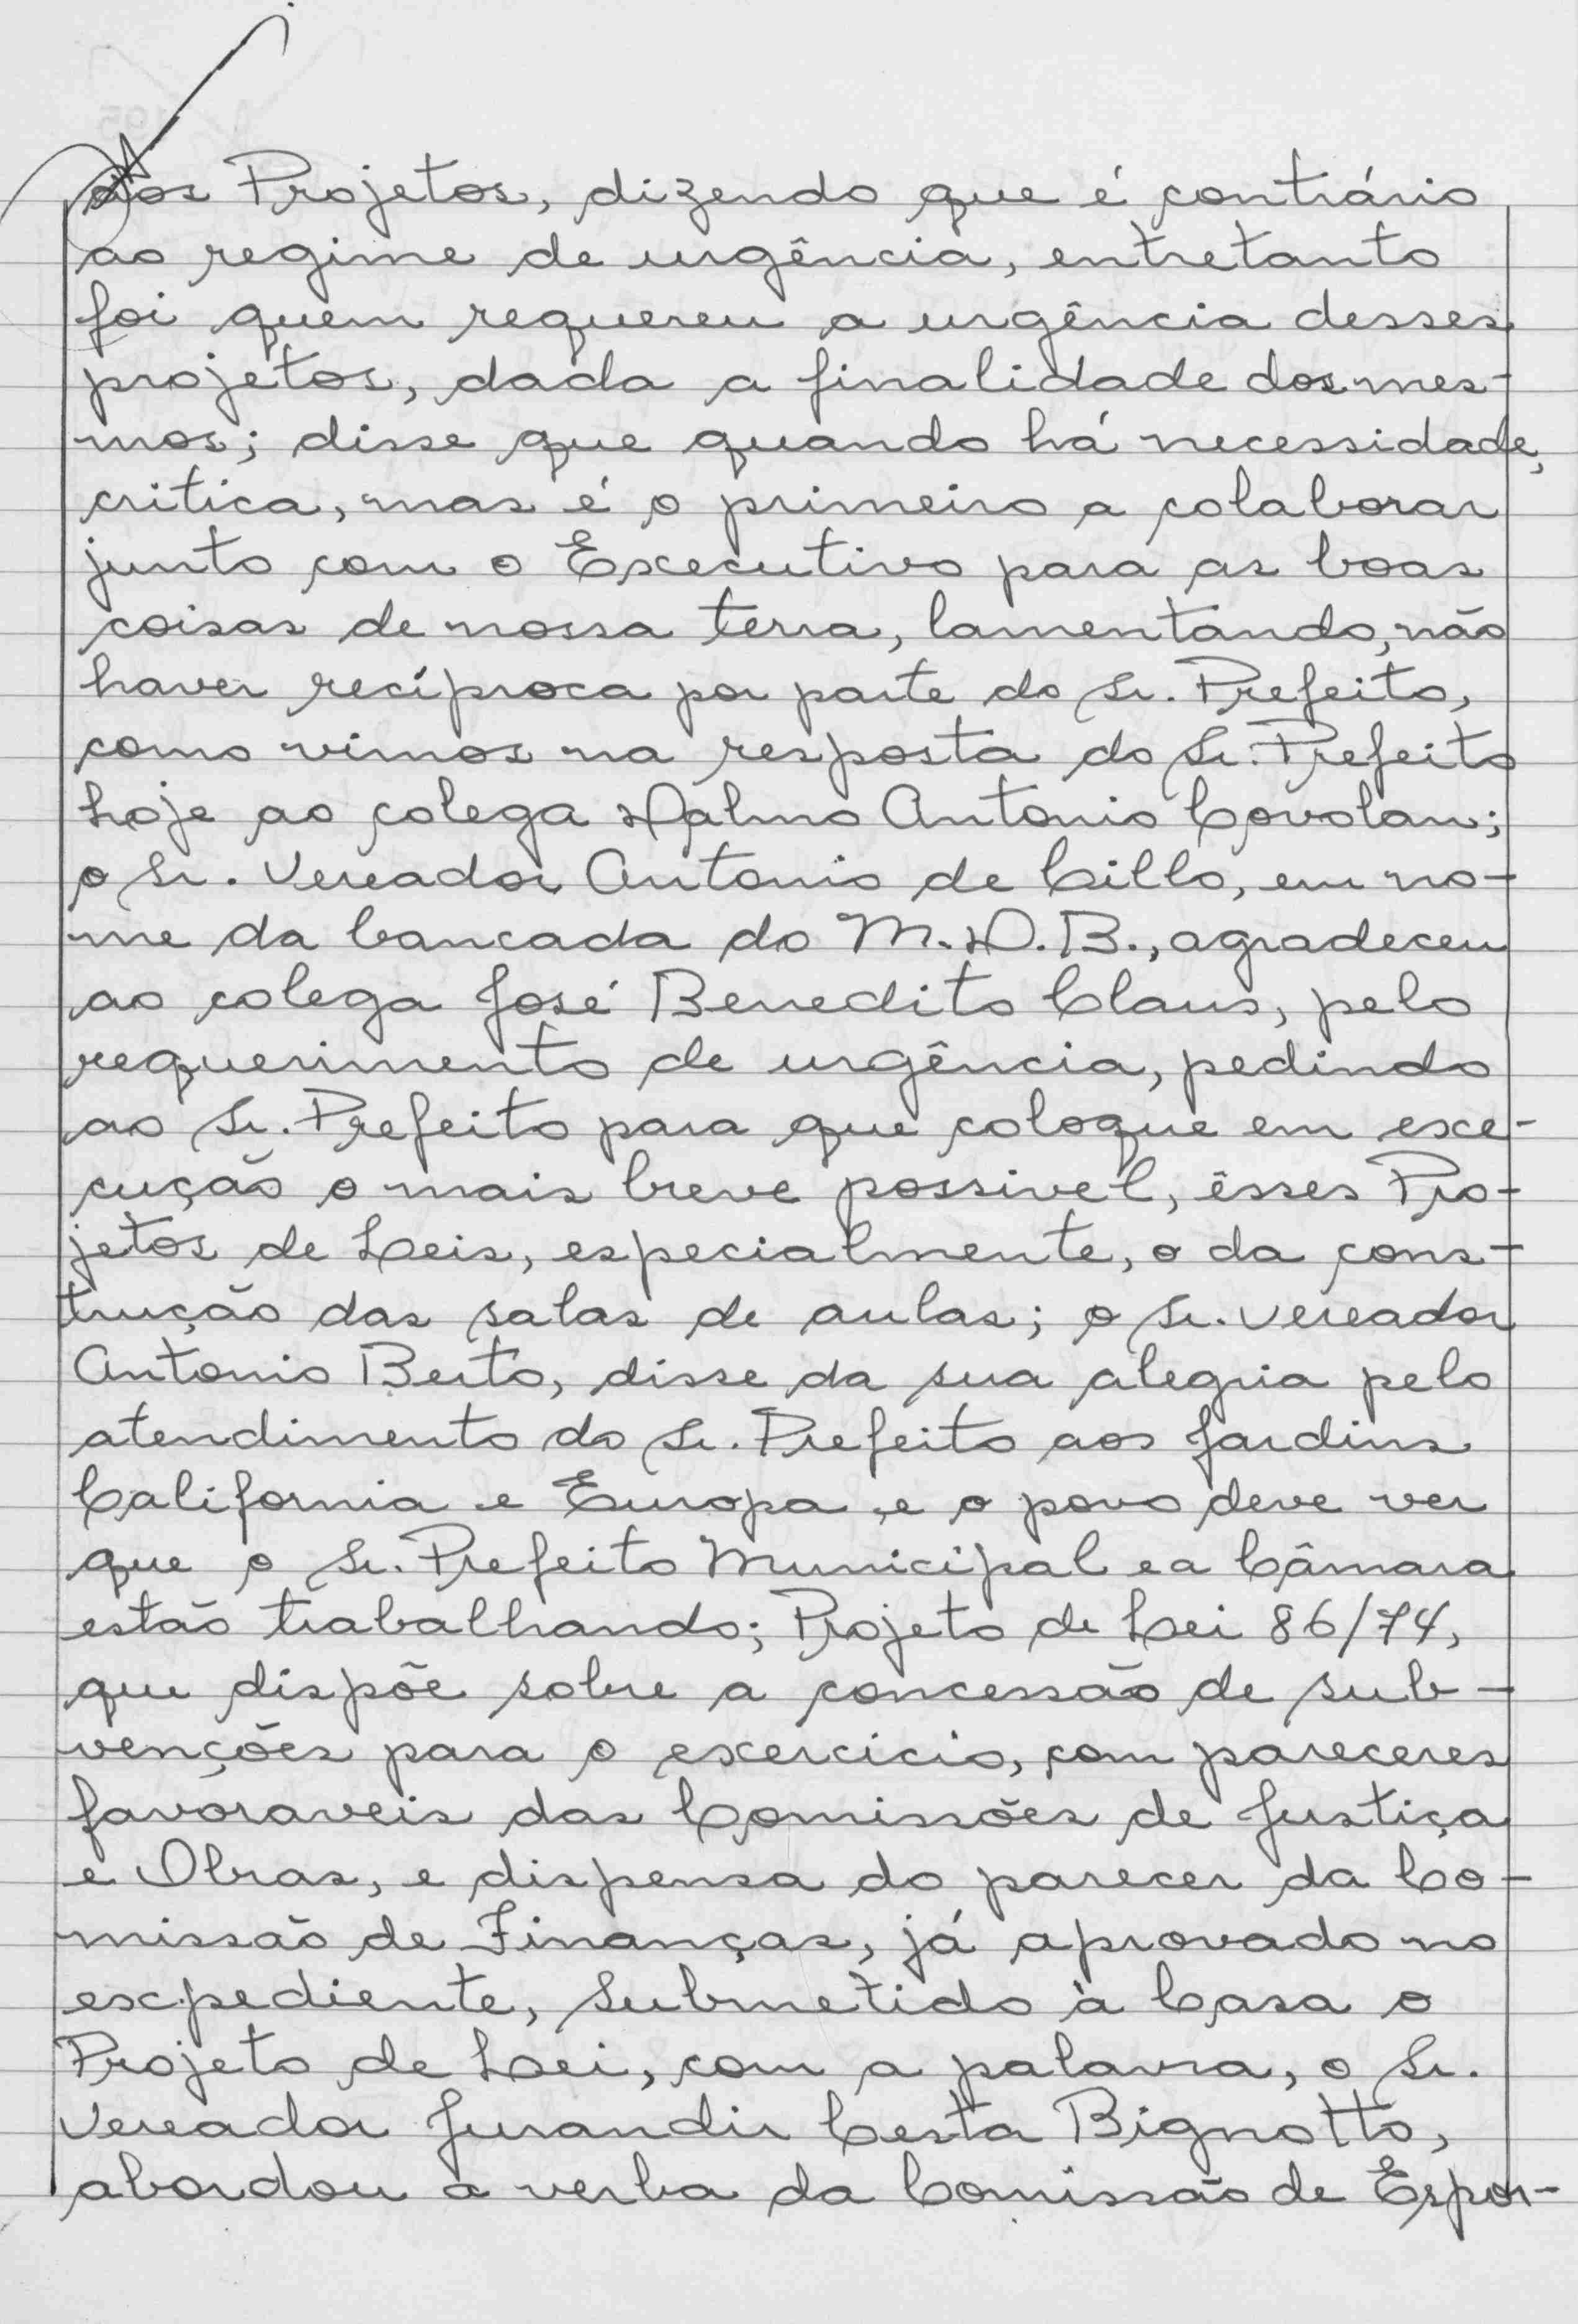 aos Projetos, dizendo que é contrário
ao regime de urgência, entretanto
foi quem requereu a urgência desses
projetos, dada a finalidade dos mes-
mos; disse que quando há necessidade,
critica, mas é o primeiro a colaborar
junto com o Executivo para as boas
coisas de nossa terra, lamentando, não
haver recíproca por parte do Sr. Prefeito,
como vimos na resposta do Sr. Prefeito
hoje ao colega Dalmo Antonio Covolan;
o Sr. Vereador Antonio de Cillo, em no-
me da bancada do M.D.B., agradeceu
ao colega José Benedito Claus, pelo
requerimento de urgência, pedindo
ao Sr. Prefeito para que coloque em exe-
cução o mais breve possivel, êsses Pro-
jetos de Leis, especialmente, o da cons-
trução das salas de aulas; o Sr. Vereador
Antonio Berto, disse da sua alegria pelo
atendimento do Sr. Prefeito aos Jardins
California e Europa e o povo deve ver
que o Sr. Prefeito Municipal e a Câmara
estão trabalhando; Projeto de Lei 86/74,
que dispõe sobre a concessão de sub-
venções para o exercicio, com pareceres
favoraveis das Comissões de Justiça
e Obras, e dispensa do parecer da Co-
missão de Finanças, já aprovado no
expediente, Submetido à Casa o
Projeto de Lei, com a palavra, o Sr.
Vereador Jurandir Cesta Bignotto,
abordou a verba da Comissão de Espor-